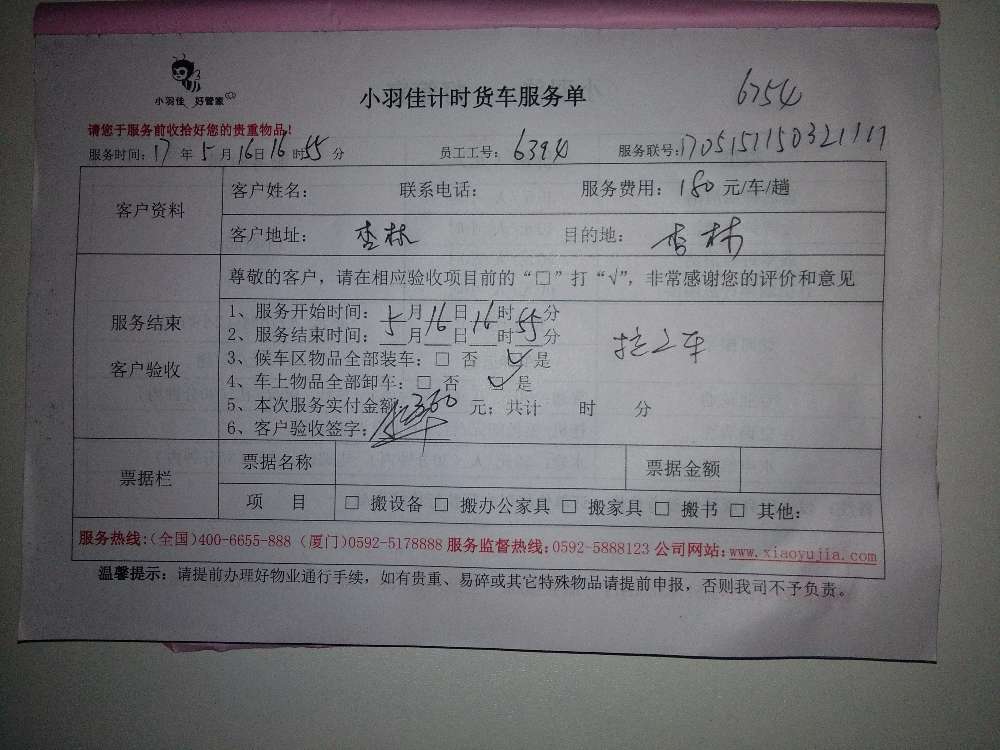 小羽佳 好管家
小羽佳计时货车服务单
6754
请您于服务前收拾好您的贵重物品!
服务时间:17年5月16日16时55分 员工工号:6394 服务联号:1705151150321117
客户资料
客户姓名: 联系电话: 服务费用:180元/车/趟
客户地址: 杏林 目的地: 杏林
服务结束
客户验收
尊敬的客户,请在相应验收项目前的“□”打“√”,非常感谢您的评价和意见
1、服务开始时间:5月16日16时55分
2、服务结束时间: 月 日 时 分
3、候车区物品全部装车:□ 否 ☑ 是
4、车上物品全部卸车:□ 否 ☑ 是
5、本次服务实付金额:360元;共计 时 分
6、客户验收签字:
票据栏
票据名称 票据金额
项 目 □ 搬设备 □ 搬办公家具 □ 搬家具 □ 搬书 □ 其他:
服务热线:(全国)400-6655-888 (厦门)0592-5178888 服务监督热线:0592-5888123 公司网站:www.xiaoyujia.com
温馨提示:请提前办理好物业通行手续,如有贵重、易碎或其它特殊物品请提前申报,否则我司不予负责。